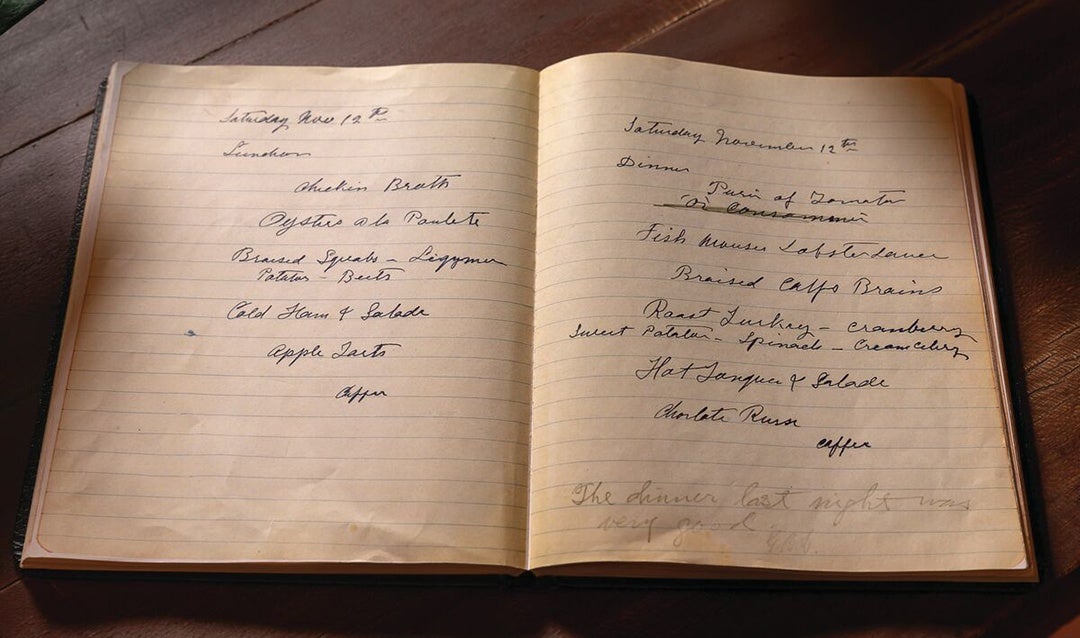 Saturday Nov 12th
Luncheon
Chicken Broth
Oysters a la Poulete
Braised Squabs – Legymes
Potatoes – Beets
Cold Ham & Salade
Apple Tarts
Coffee
Saturday November 12th
Dinner
Puri of Tomatoe
or Consommie
Fish Mouses Lobster Sauce
Braised Calfs Brains
Roast Turkey – Cranberry
Sweet Potatoe – Spinach – Cream Celery
Hot Tongue & Salade
Charlate Russ
Coffee
The dinner last night was
very good.